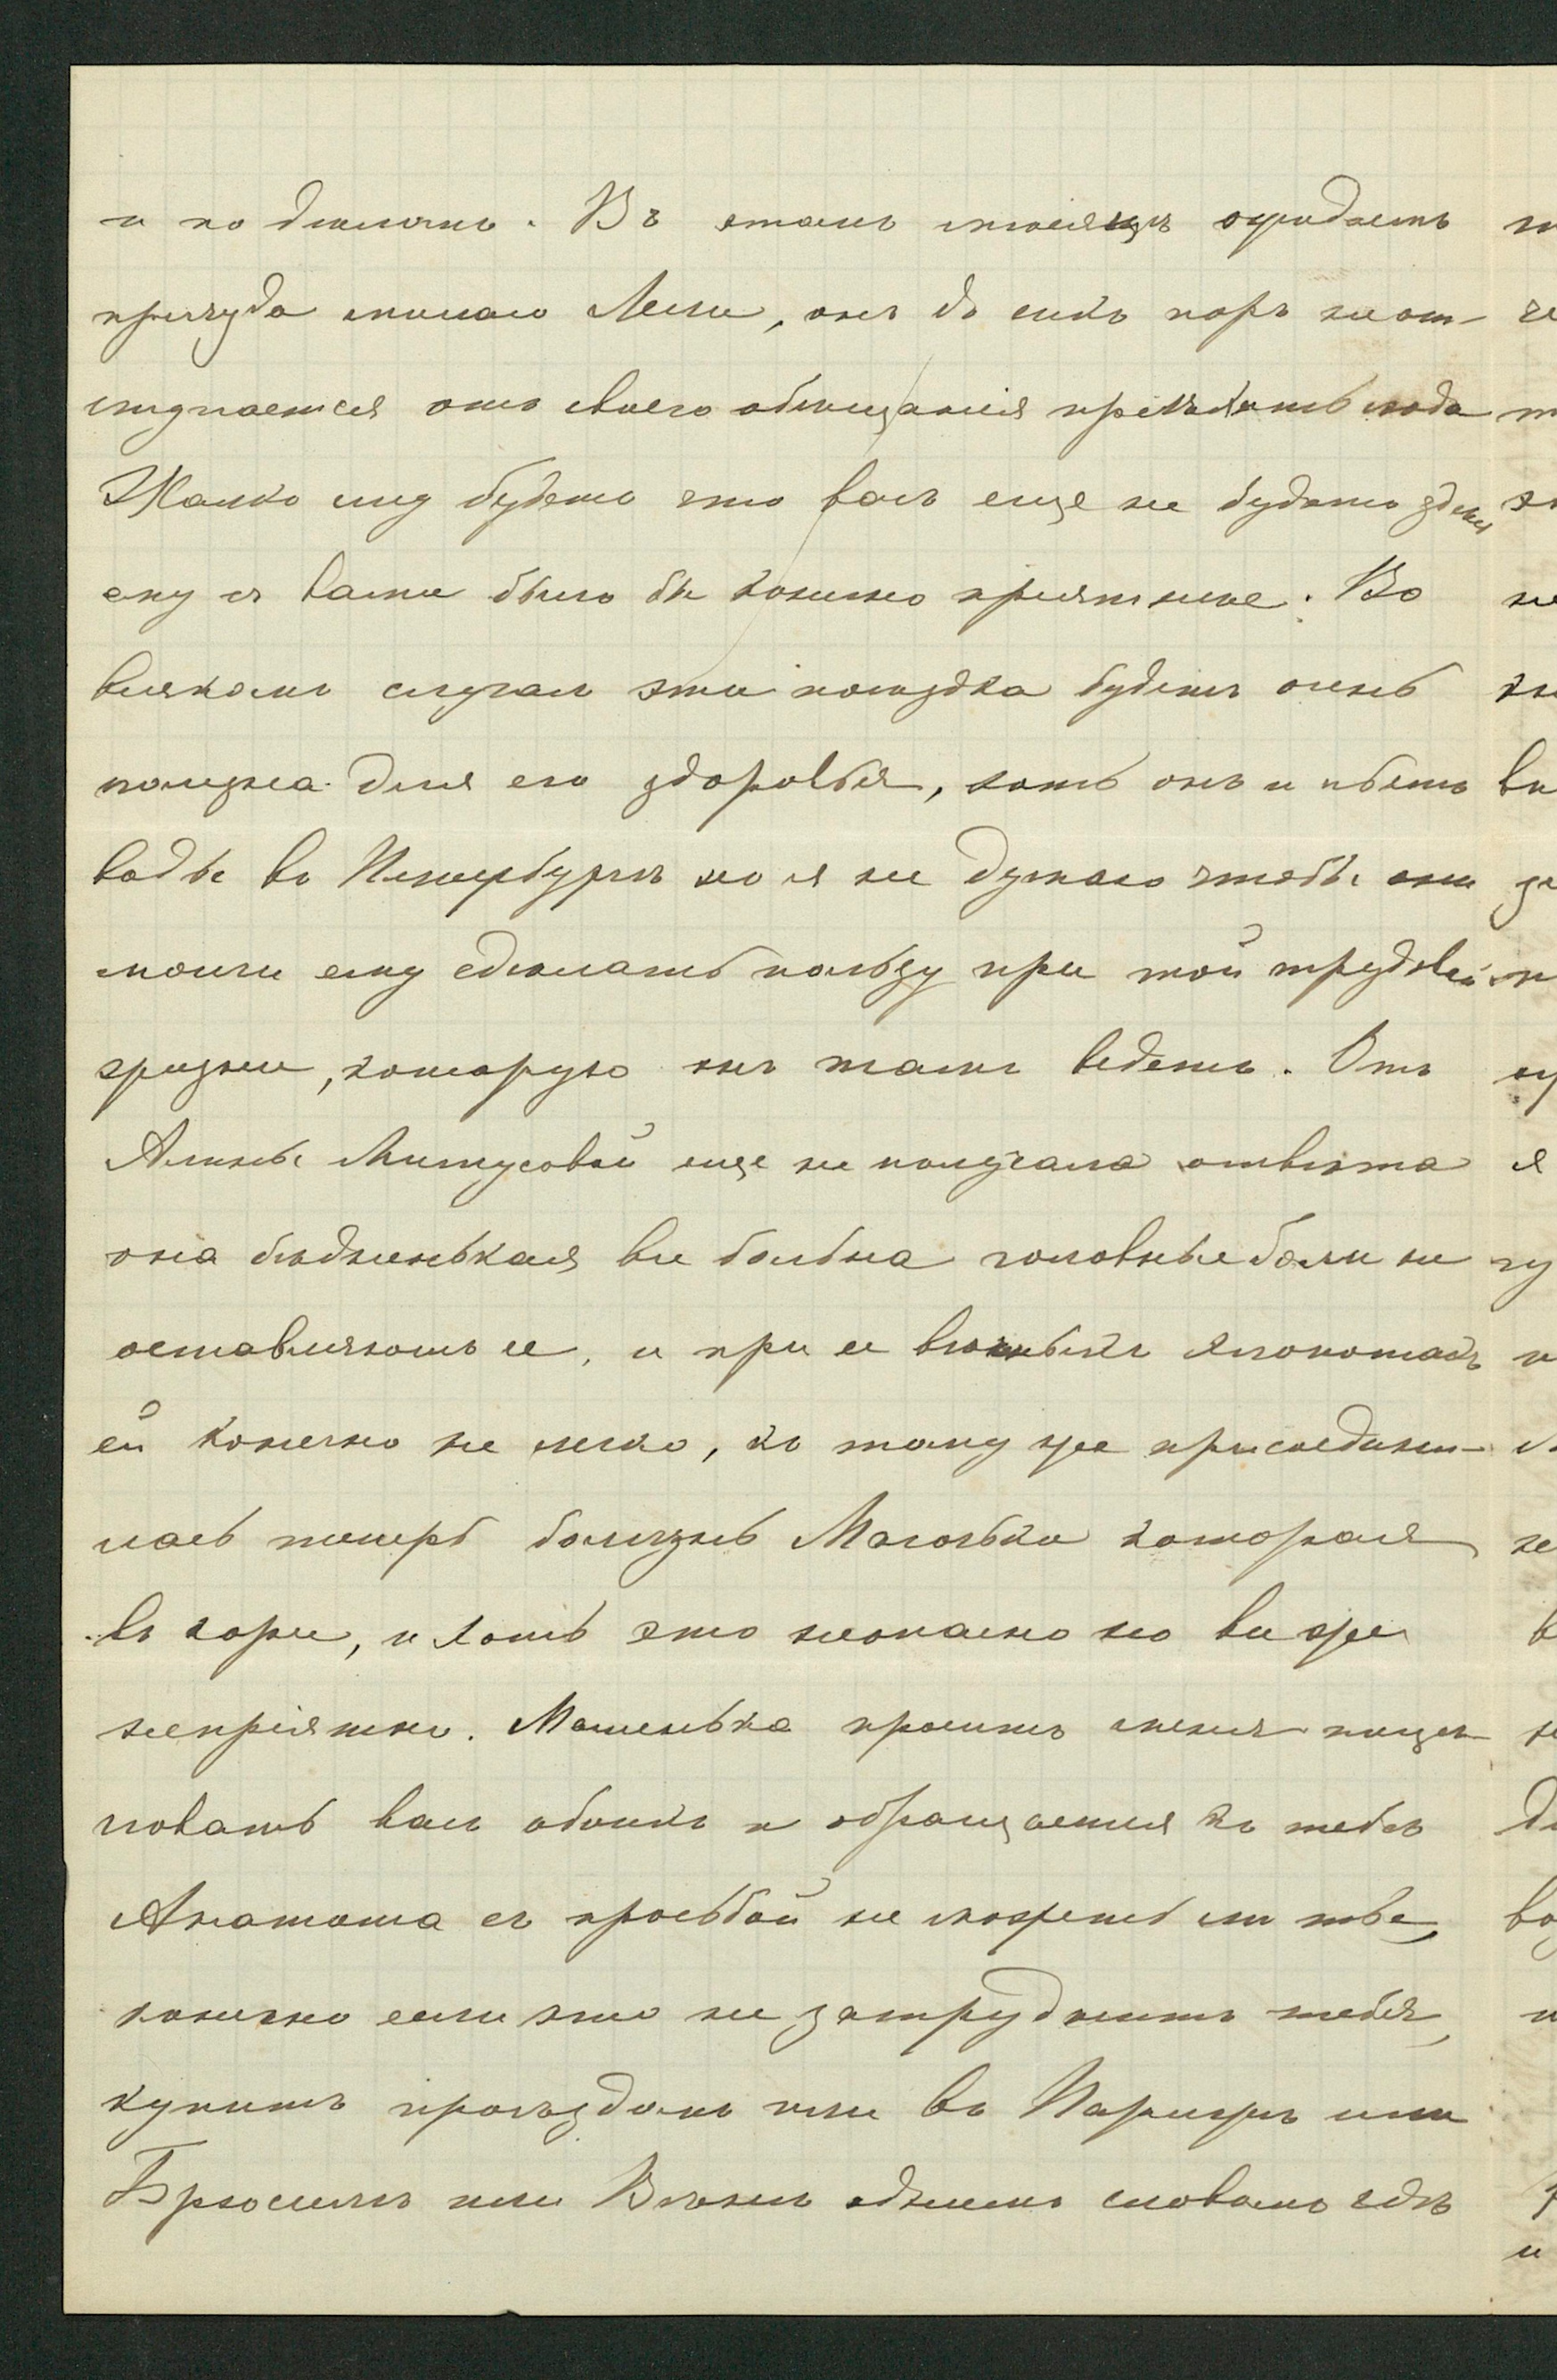 и по деламъ. Въ этомъ мѣсяцѣ ожидаемъ
пріѣзда милаго Лели, онъ до сихъ поръ не от-
ступается отъ своего обѣщанія пріѣхать сюда
Жалко ему будетъ что васъ еще не будетъ здѣсь
ему съ вами было бы конечно пріятнѣе. Во
всякомъ случаѣ эта поѣздка будетъ очень
полезна для его здоровья, хоть онъ и пьетъ
воды въ Петербургѣ но я не думаю чтобы они
могли ему сдѣлать пользу при той трудовой
жизни, которую онъ тамъ ведетъ. Отъ
Алины Митусовой еще не получала отвѣта
она бѣдненькая все больна головные боли не
оставляютъ ее, и при ее вѣчныхъ хлопотахъ
ей конечно не легко, къ тому же присоедини-
лась теперь болѣзнь которая
въ кори, и хоть это неопасно но все же
непріятно. Машенька проситъ меня поцѣ-
ловать васъ обоихъ и обращается къ тебѣ
Анатоша съ просьбой не можешь ли ты,
конечно если это не затруднитъ тебя,
купить проѣздомъ или въ Парижѣ или
Брюсселѣ или Вѣнѣ однимъ словомъ гдѣ